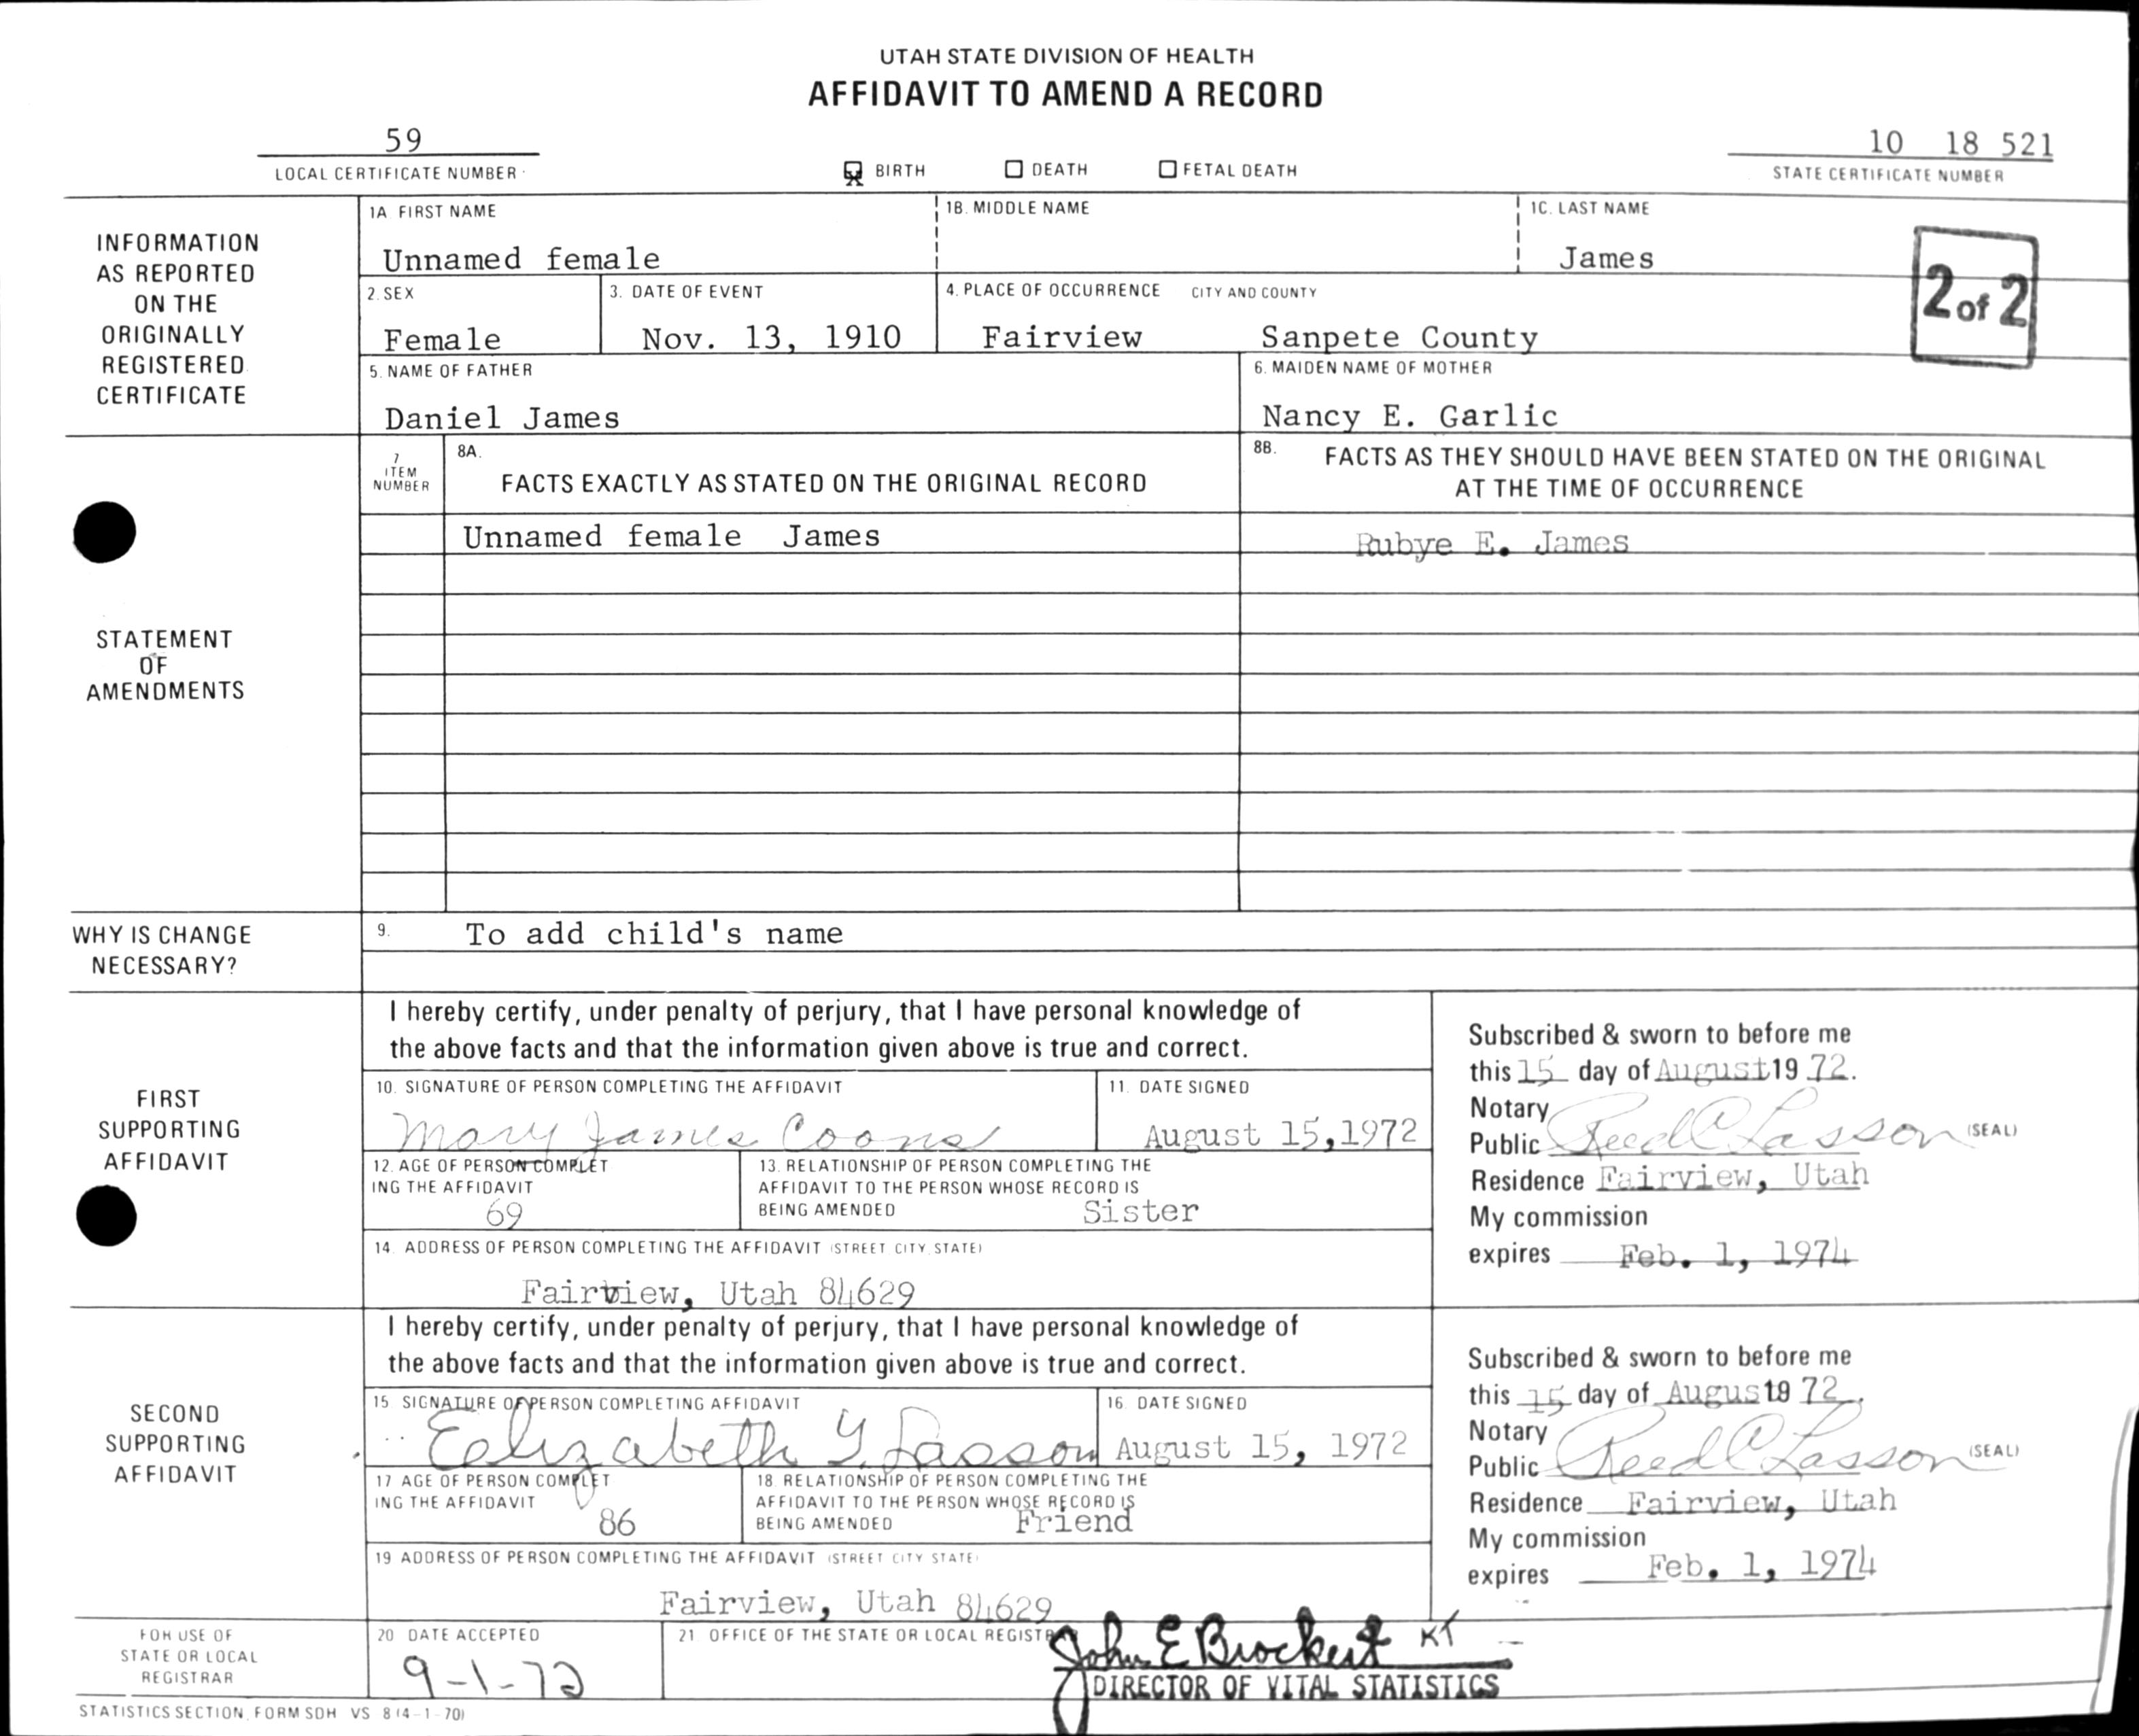 UTAH STATE DIVISION OF HEALTH
AFFIDAVIT TO AMEND A RECORD
59
LOCAL CERTIFICATE NUMBER
BIRTH DEATH FETAL DEATH
10 18 521
STATE CERTIFICATE NUMBER
INFORMATION
AS REPORTED
ON THE
ORIGINALLY
REGISTERED
CERTIFICATE
1A FIRST NAME
Unnamed female
1B. MIDDLE NAME
1C. LAST NAME
James
2 of 2
2. SEX
Female
3. DATE OF EVENT
Nov. 13, 1910
4. PLACE OF OCCURRENCE CITY AND COUNTY
Fairview Sanpete County
5. NAME OF FATHER
Daniel James
6. MAIDEN NAME OF MOTHER
Nancy E. Garlic
STATEMENT
OF
AMENDMENTS
7
ITEM
NUMBER
8A.
FACTS EXACTLY AS STATED ON THE ORIGINAL RECORD
8B. FACTS AS THEY SHOULD HAVE BEEN STATED ON THE ORIGINAL
AT THE TIME OF OCCURRENCE
Unnamed female James
Rubye E. James
WHY IS CHANGE
NECESSARY?
9. To add child's name
FIRST
SUPPORTING
AFFIDAVIT
I hereby certify, under penalty of perjury, that I have personal knowledge of
the above facts and that the information given above is true and correct.
10. SIGNATURE OF PERSON COMPLETING THE AFFIDAVIT
Mary James Coons
11. DATE SIGNED
August 15, 1972
12. AGE OF PERSON COMPLET
ING THE AFFIDAVIT
69
13. RELATIONSHIP OF PERSON COMPLETING THE
AFFIDAVIT TO THE PERSON WHOSE RECORD IS
BEING AMENDED Sister
14. ADDRESS OF PERSON COMPLETING THE AFFIDAVIT (STREET CITY, STATE)
Fairview, Utah 84629
Subscribed & sworn to before me
this 15 day of August 19 72.
Notary
Public Reed C Lasson (SEAL)
Residence Fairview, Utah
My commission
expires Feb. 1, 1974
SECOND
SUPPORTING
AFFIDAVIT
I hereby certify, under penalty of perjury, that I have personal knowledge of
the above facts and that the information given above is true and correct.
15 SIGNATURE OF PERSON COMPLETING AFFIDAVIT
Eelizabeth Y. Lasson
16. DATE SIGNED
August 15, 1972
17 AGE OF PERSON COMPLET
ING THE AFFIDAVIT
86
18. RELATIONSHIP OF PERSON COMPLETING THE
AFFIDAVIT TO THE PERSON WHOSE RECORD IS
BEING AMENDED Friend
19 ADDRESS OF PERSON COMPLETING THE AFFIDAVIT (STREET CITY STATE)
Fairview, Utah 84629
Subscribed & sworn to before me
this 15 day of August 19 72.
Notary
Public Reed C Lasson (SEAL)
Residence Fairview, Utah
My commission
expires Feb. 1, 1974
FOR USE OF
STATE OR LOCAL
REGISTRAR
20 DATE ACCEPTED
9-1-72
21 OFFICE OF THE STATE OR LOCAL REGISTR
John E Brockert KT
DIRECTOR OF VITAL STATISTICS
STATISTICS SECTION, FORM SDH VS 8 (4-1-70)